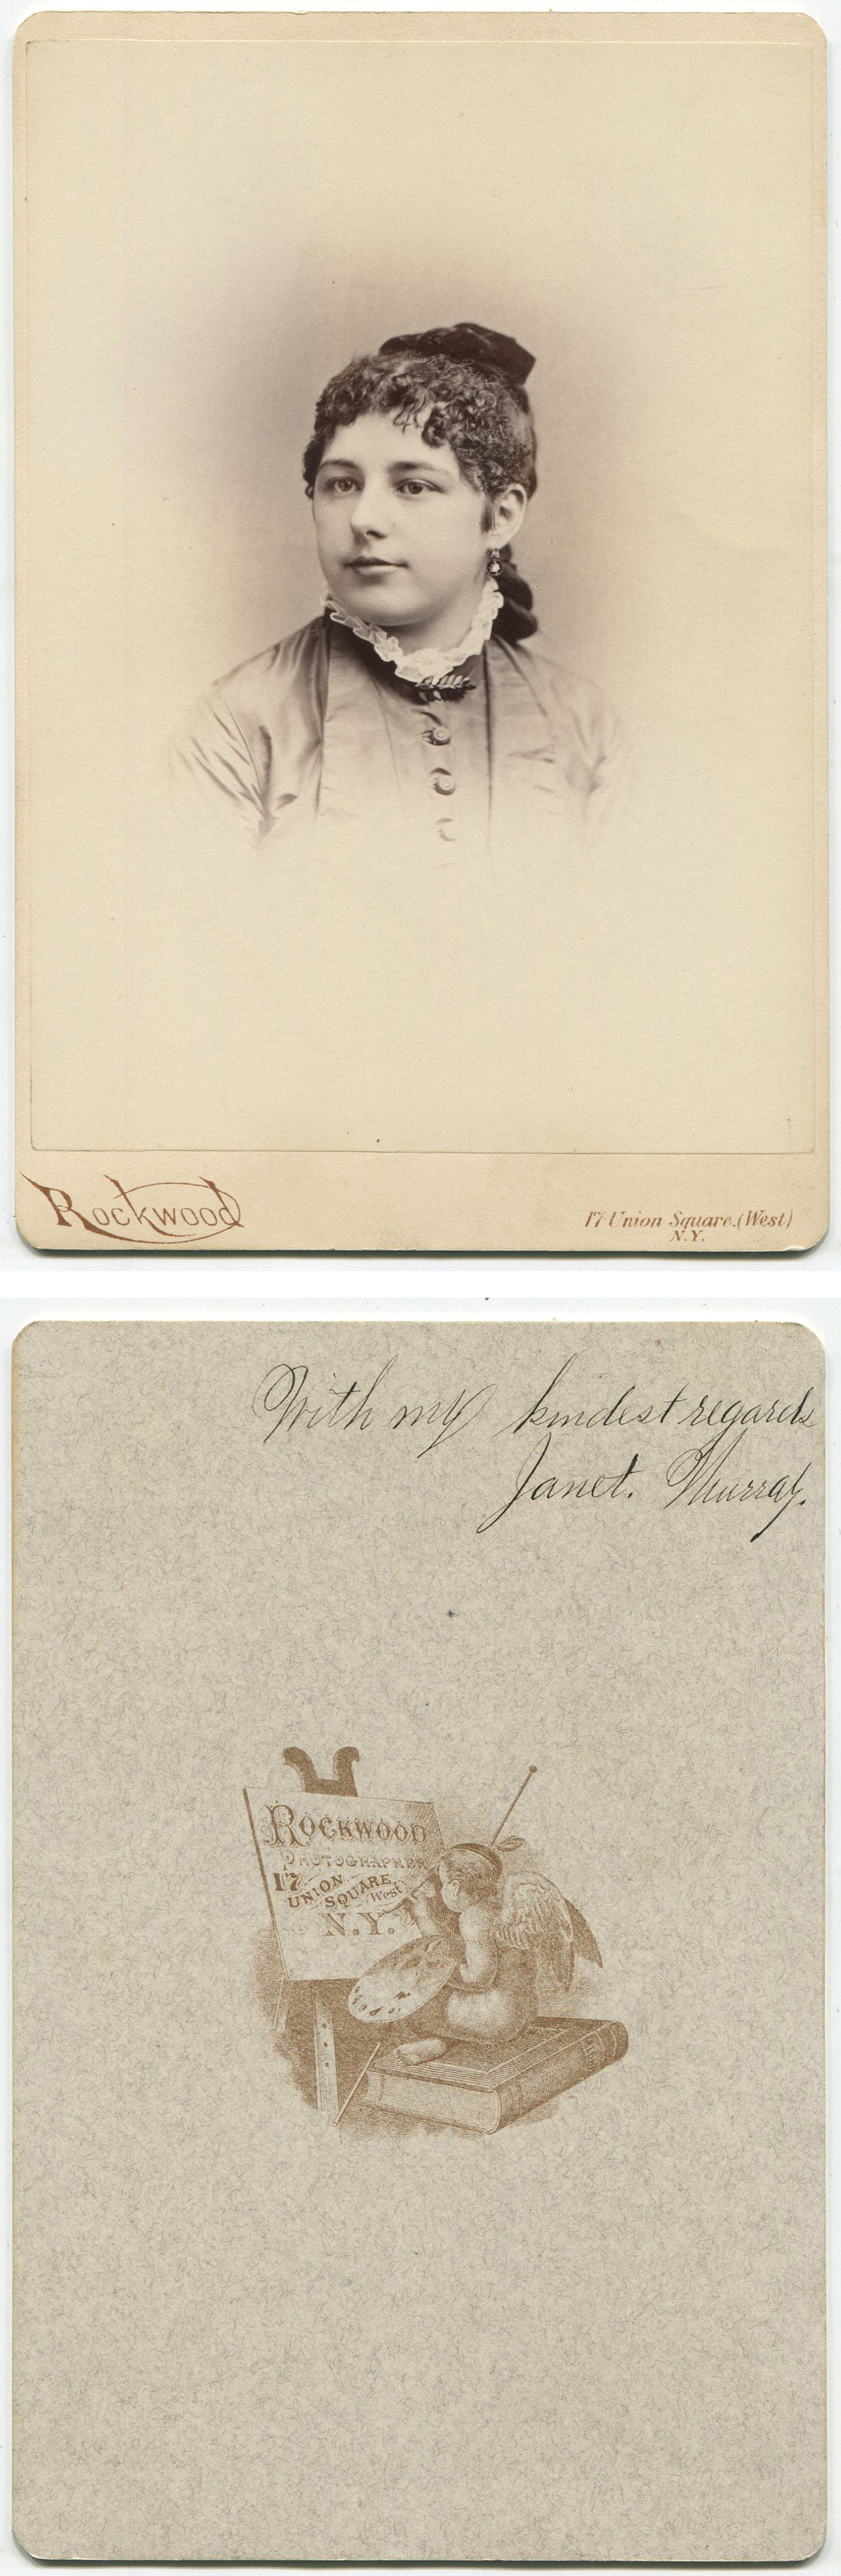 Rockwood
17 Union Square.(West)
N.Y.
With my kindest regards
Janet. Murray.
ROCKWOOD
PHOTOGRAPHER
17 UNION SQUARE (West)
N.Y.